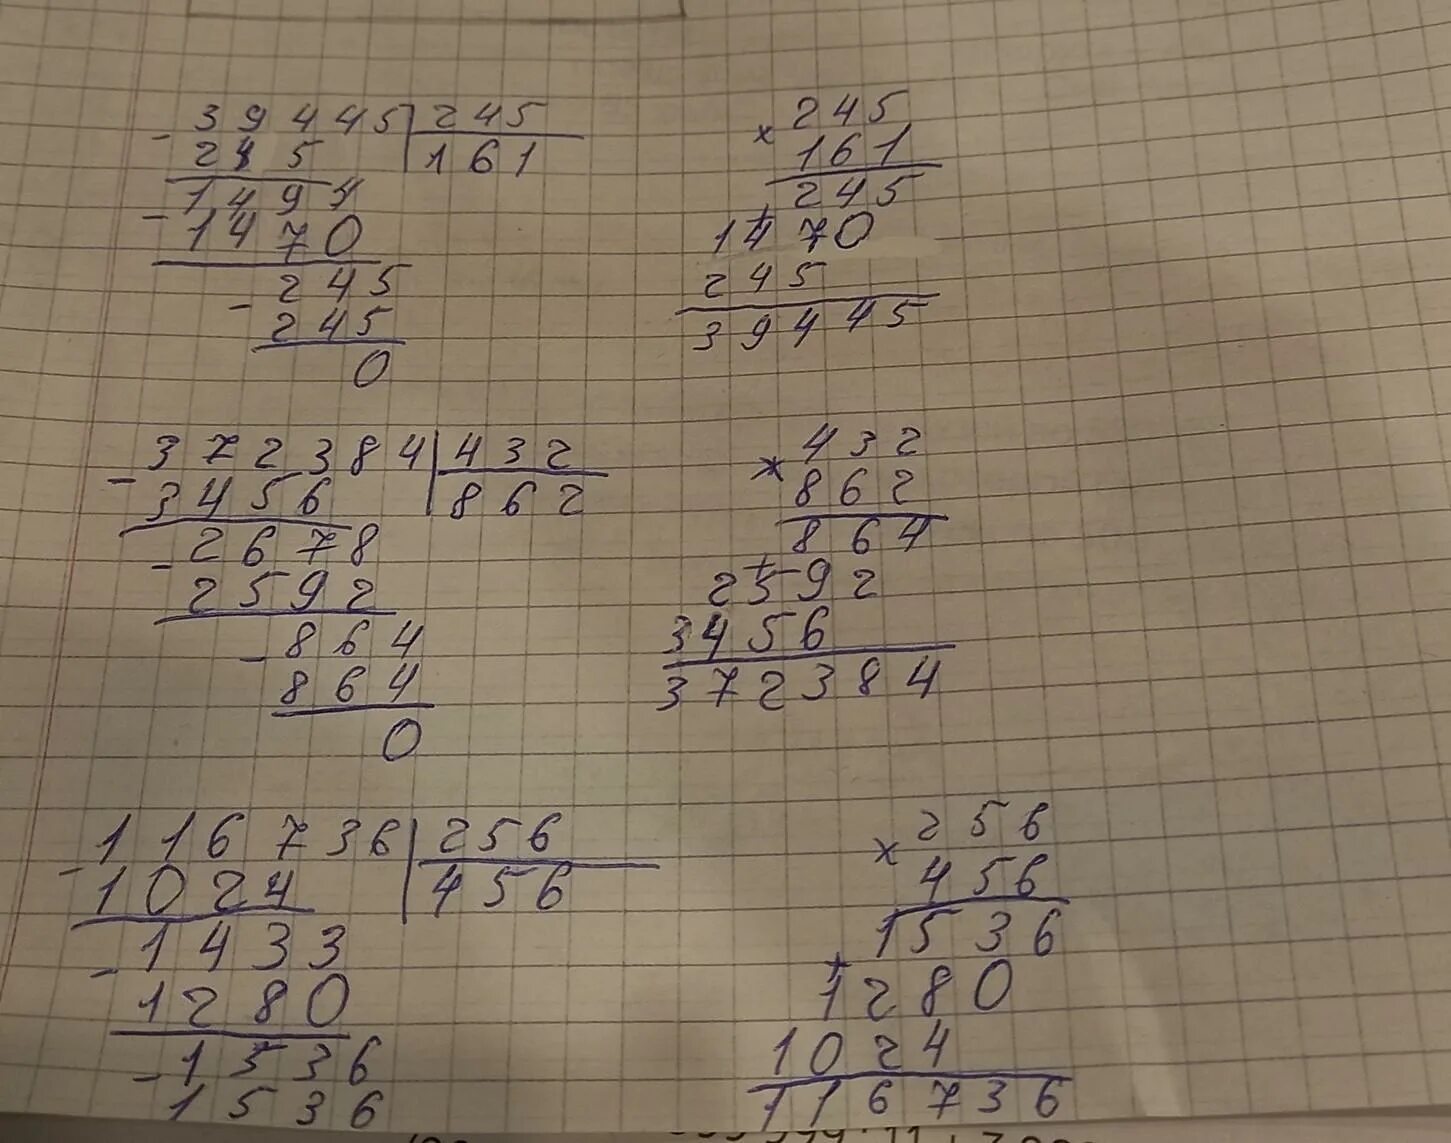 - 39445 | 245
245 | 161
- 1494
1470
- 245
245
0
× 245
161
245
+ 1470
245
39445
- 372384 | 432
3456 | 862
- 2678
2592
- 864
864
0
× 432
862
864
+ 2592
3456
372384
- 116736 | 256
1024 | 456
- 1433
1280
- 1536
1536
× 256
456
1536
+ 1280
1024
116736